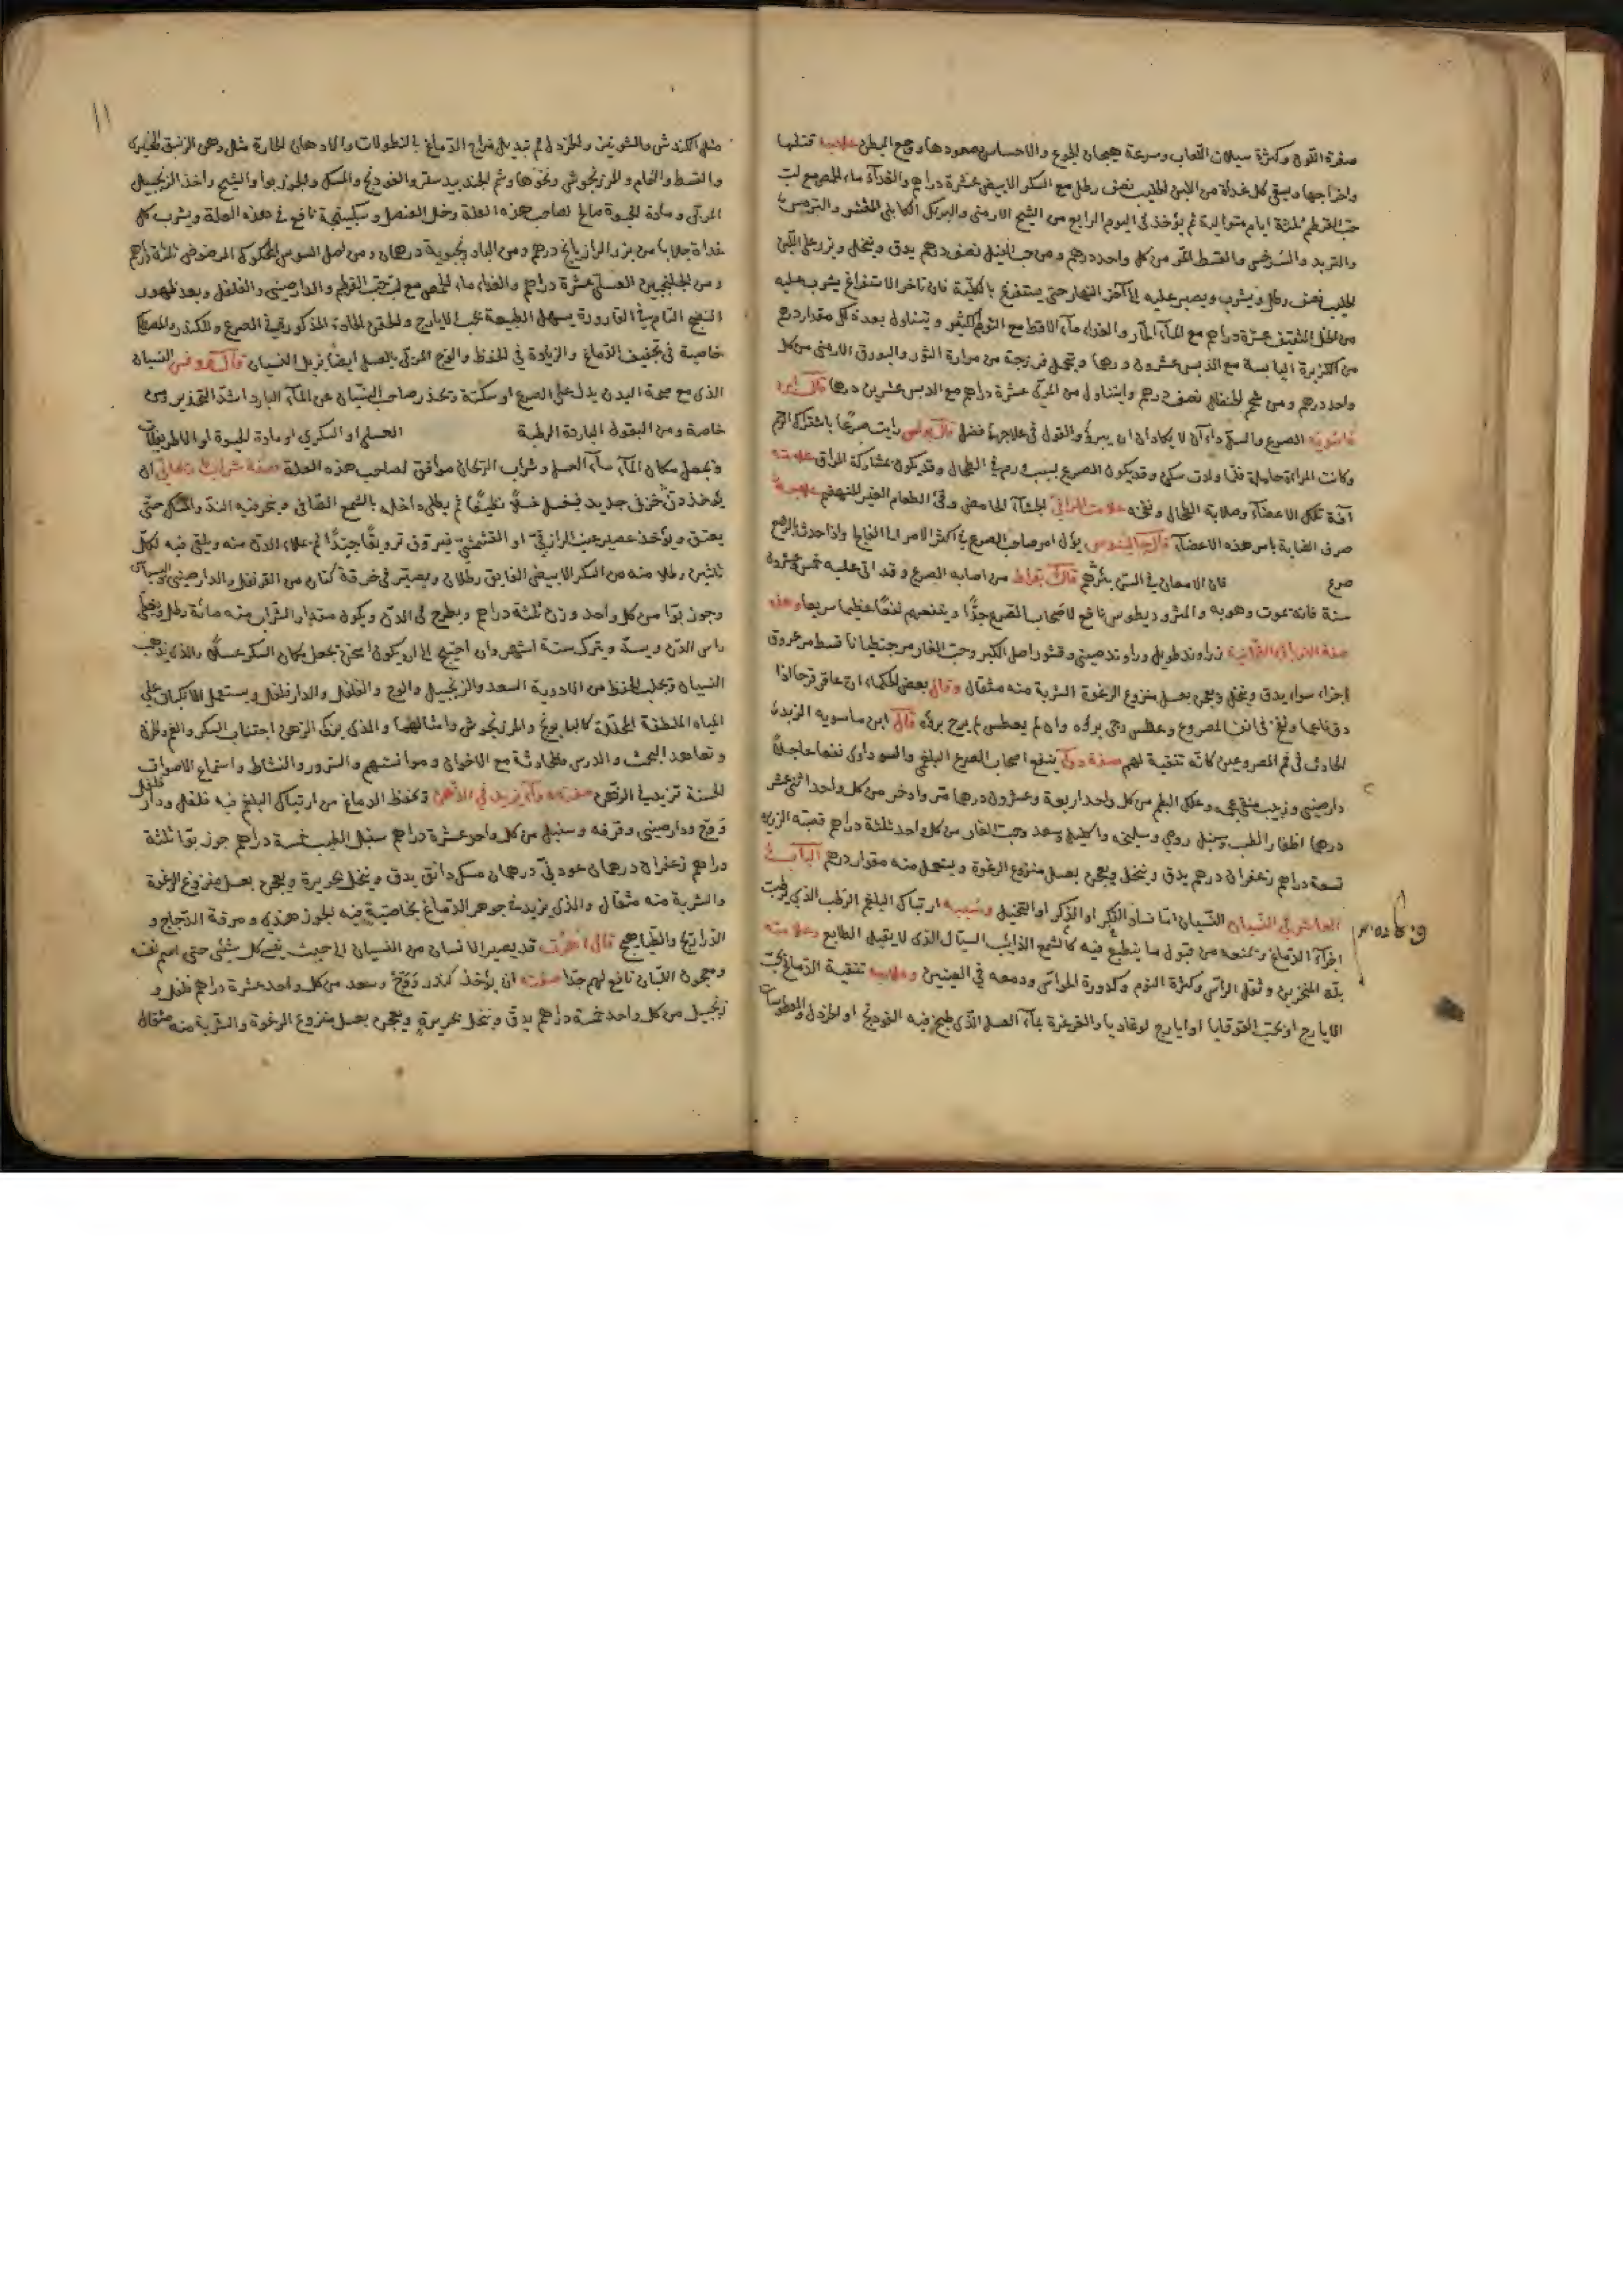 صفرة اللون وكثرة سيلان اللعاب وسرعة هيجان الجوع والاحساس بصعودها وجع البطن علاجه قتلها
واخراجها ويسقى كل غداة من اللبن الحليب نصف رطل مع السكر الابيض عشرة دراهم والغداء ماء الحمص مع لب
حب القرطم ثلثة ايام متوالية ثم يؤخذ فى اليوم الرابع من الشيح الارمنى والبرنك الكابلى المقشر والترمس
والتربد والسرخس والقسط المر من كل واحد درهم ومن حب النيل نصف درهم يدق وينخل ويذر على اللبن
الحليب نصف رطل ويشرب ويصبر عليه الى آخر النهار حتى يستفرغ بالكلية فان تأخر الاستفراغ يشرب عليه
من الخل الثقيف عشرة دراهم مع الماء الحار والغداء ماء الاقط مع الثوم الكثير ويتناول بعده كل مقدار درهم
من الكزبرة اليابسة مع الدبس عشرون درهما ويتحمل فرزجة من مرارة الثور والبورق الارمنى من كل
واحد درهم ومن شحم الحنظل نصف درهم وليتناول من المرى عشرة دراهم مع الدبس عشرين درهما قال ابن
ماسويه الصرع والسل داءان لا يكادان ان يبرؤ والقول فى علاجهما فضل قال بولس رايت صرعا باشتراك الرحم
وكانت المراة حاملة فلما ولدت سكن وقد يكون الصرع بسبب ورم فى الطحال وقد يكون بمشاركة المراق علامته
آفة تلك الاعضاء وصلابة الطحال ونفخه علامة المراقى الجشاء الحامض وقئ الطعام الغير المنهضم علاجه
صرف العناية باس هذه الاعضاء قال جالينوس يؤل امر صاحب الصرع فى اكثر الامر الى الفالج واذا حدث بالرضع
صرع فان الامعان فى السن يبرئهم قال بقراط من اصابه الصرع وقد اتى عليه خمس وعشرون
سنة فانه يموت وهو به والمثروديطوس نافع لاصحاب الصرع جدا وينفعهم نفعا عظيما سريعا وهذه
زراوند طويل وراوند صينى وقشور اصل الكبر وحب الغار من جنطيانا قسط مر عروق
اجزاء سواء يدق وينخل ويعجن بعسل منزوع الرغوة الشربة منه مثقال وقال بعض الحكماء ان عاقرقرحا اذا
دق ناعما ونفخ فى انف المصروع وعطس رجى برؤه وان لم يعطس لم يرج برؤه قال ابن ماسويه الزبد
الحادث فى فم المصروعين كانه تنقية لهم صفة دواء ينفع اصحاب الصرع البلغمى والسوداوى نفعا عاجلا
دارصينى وزبيب منقى عجمه وعلك البطم من كل واحد اربعة وعشرون درهما مر واذخر من كل واحد اثنى عشر
درهما اظفار الطيب وسنبل رومى وسليخه واكليل وسعد وحب الغار من كل واحد ثلثة دراهم قصبة الزريرة
تسعة دراهم زعفران درهم يدق وينخل ويعجن بعسل منزوع الرغوة ويتعمل منه مقدار درهم الباب
العاشر فى النسيان النسيان اما فساد الفكر او الذكر او التخيل وسببه ارتباك البلغم الرطب الذى يرطب
اجزاء الدماغ وتمنعه من قبول ما ينطبع فيه كالشمع الذايب السيال الذى لا يقبل الطابع وعلامته
بلة المنخرين وثقل الراس وكثرة النوم وكدورة الحواس ودمعه فى العينين وعلاجه تنقية الدماغ بحب
الايارج او بحب القوقايا او ايارج لوغاديا والغرغرة بماء العسل الذى طبخ فيه الفودنج او الخردل والعطوسات
١١
مثل الكندش والشونيز والخردل ثم تبديل مزاج الدماغ بالنطولات والادهان الحارة مثل دهن الزنبق الخيرى
والقسط والخام والمرزنجوش ونحوها وشم الجندبيدستر والفودنج والمسك والجوزبوا والشيح واخذ الزنجبيل
المربى ومادة الحيوة صالح لصاحب هذه العلة وخل العنصل وسكنجبينه نافع فى هذه العلة ويشرب كل
غداة جلابا من بزر الرازيانج درهم ومن البادرنجبوية درهمان ومن اصل السوس المحكوك المرضوض ثلثة دراهم
ومن الجلنجبين العسلى عشرة دراهم والغداء ماء الحمص مع لب حب القرطم والدارصينى والفلفل وبعد ظهور
النضج التام فى القارورة يسهل الطبيعة بحب الايارج والحقن الحادة المذكورة فى الصرع وللكندر والمصطكا
خاصية فى تجفيف الدماغ والزيادة فى الحفظ والوج المربى بالعسل ايضا يزيل النسيان قال روفس النسيان
الذى مع صحة البدن يدل على الصرع او سكتة ويحذر صاحب النسيان عن الماء البارد اشد التحذير ومن
خاصة ومن البقول الباردة الرطبة العسلى او السكرى او مادة الحيوة او الاطريفلات
ويجعل مكان الماء ماء العسل وشراب الريحان موافق لصاحب هذه العلة صفة شراب ريحانى ان
يؤخذ دن خزفى جديد فيغسل غسلا نظيفا ثم يطلى داخله بالشمع الصافى ويبخر فيه الند والمسك حتى
يعتق ويؤخذ عصير عنب الرازقى او القشمشى فيروق ترويقا جيدا ثم يملاء الدن منه ويلقى فيه لكل
ثلثين رطلا منه من السكر الابيض الفايق رطلان ويصير فى خرقة كتان من القرنفل والدارصينى والبسباسة
وجوز بوا من كل واحد وزن ثلثة دراهم ويطرح فى الدن ويكون مقدار الشراب منه مائة رطل ويغطى
راس الدن ويسد ويترك ستة اشهر وان احتيج الى ان يكون اسخن يجعل مكان السكر عسلا والذى يذهب
النسيان ويجلب الحفظ من الادوية السعد والزنجبيل والوج والفلفل والدارفلفل ويستعمل الانكباب على
المياه الملطفة المحللة كالبابونج والمرزنجوش وامثالهما والذى يزكى الذهن اجتناب السكر والغم والحزن
وتعاهد البحث والدرس والمحادثة مع الاخوان وموانستهم والسرور والنشاط واستماع الاصوات
الحسنة تزيد فى الذهن صفة دواء يزيد فى الذهن وتحفظ الدماغ من ارتباك البلغم فيه فلفل ودار فلفل
ووج ودارصينى وقرفه وسنبل من كل واحد عشرة دراهم سنبل الطيب خمسة دراهم جوز بوا ثلثة
دراهم زعفران درهمان عود نى درهمان مسك دانق يدق وينخل بحريرة ويعجن بعسل منزوع الرغوة
والشربة منه مثقال والذى يزيد فى جوهر الدماغ بخاصية فيه الجوز هندى ومرقة الدجاج و
الدراريج والطياهيج قال اهرن قد يصير الانسان من النسيان الى حيث ينسى كل شئى حتى اسم نفسه
ومعجون اللبان نافع لهم جدا صفته ان يؤخذ كندر ووج وسعد من كل واحد عشرة دراهم فلفل و
زنجبيل من كل واحد خمسة دراهم يدق وينخل بحريرة ويعجن بعسل منزوع الرغوة والشربة منه مثقال